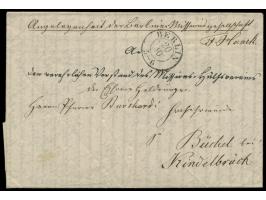 Angelegenheit der Berliner Missionsgesellschaft
BERLIN
20
An
den verehrlichen Vorstand des Missions-Hülfsvereins
der
Herrn Pfarrer Burchardi
Büchel bei
Kindelbrück